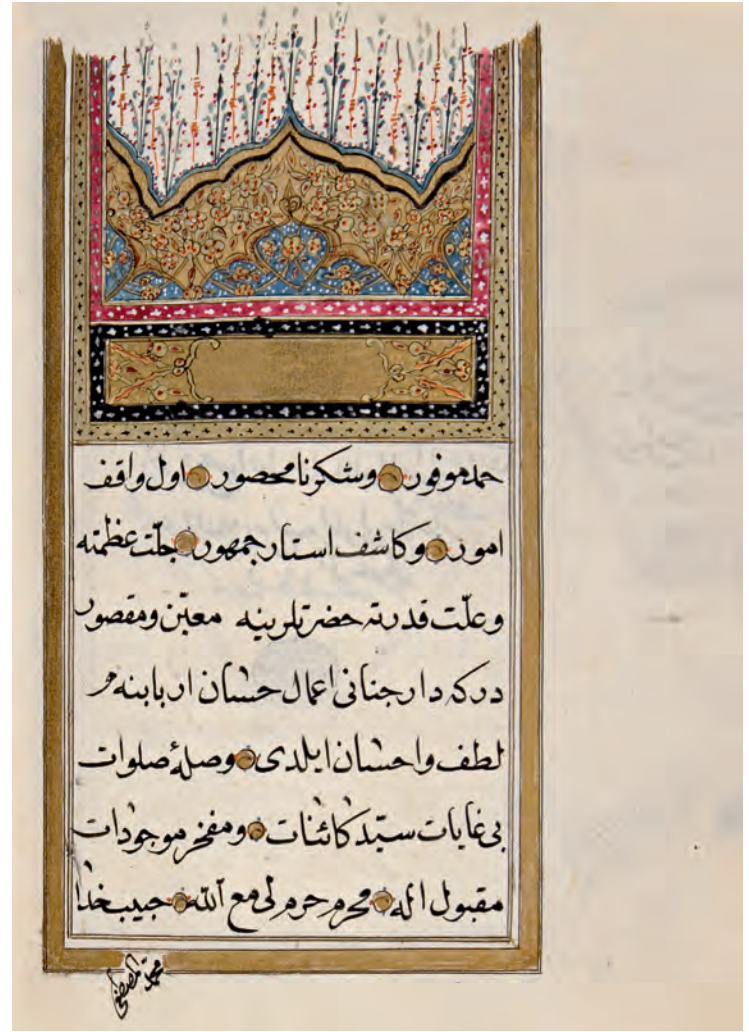 حمد موفور وشكر نامحصور اول واقف
امور وكاشف استار جمهور جلّت عظمته
وعلّت قدرته حضرتلرينه معيّن ومقصور
دركه دار جنانى اعمال حسان اربابنه
لطف واحسان ايلدى وصلهٔ صلوات
بى غايات سيّد كائنات ومفخر موجودات
مقبول اله محرم حرم لى مع الله حبيب خدا
محمد المصطفى